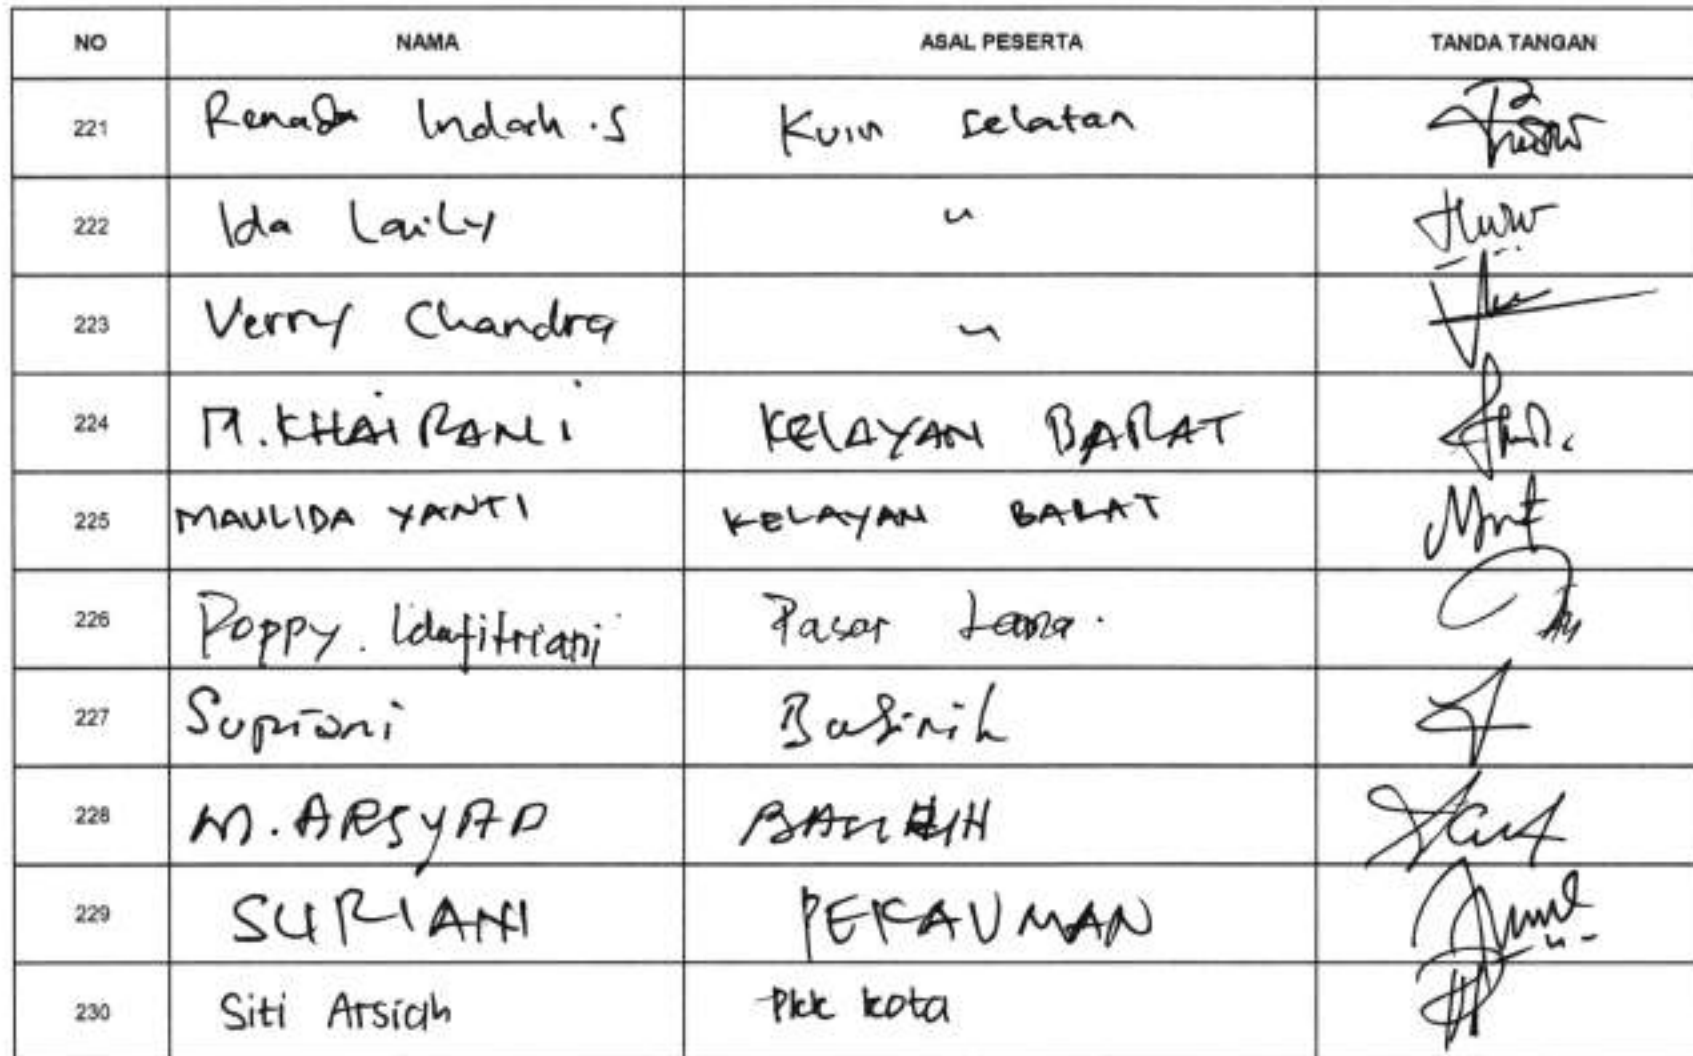 NO NAMA ASAL PESERTA TANDA TANGAN
221 Renada Indah .S Kuin selatan
222 Ida Laily "
223 Verry Chandra "
224 M. KHAIRANI KELAYAN BARAT
225 MAULIDA YANTI KELAYAN BARAT
226 Poppy. Idafitriani Pasar Lama.
227 Supriani Basirih
228 M. ARSYAD
229 SURIANI PEKAUMAN
230 Siti Arsiah Pkk kota